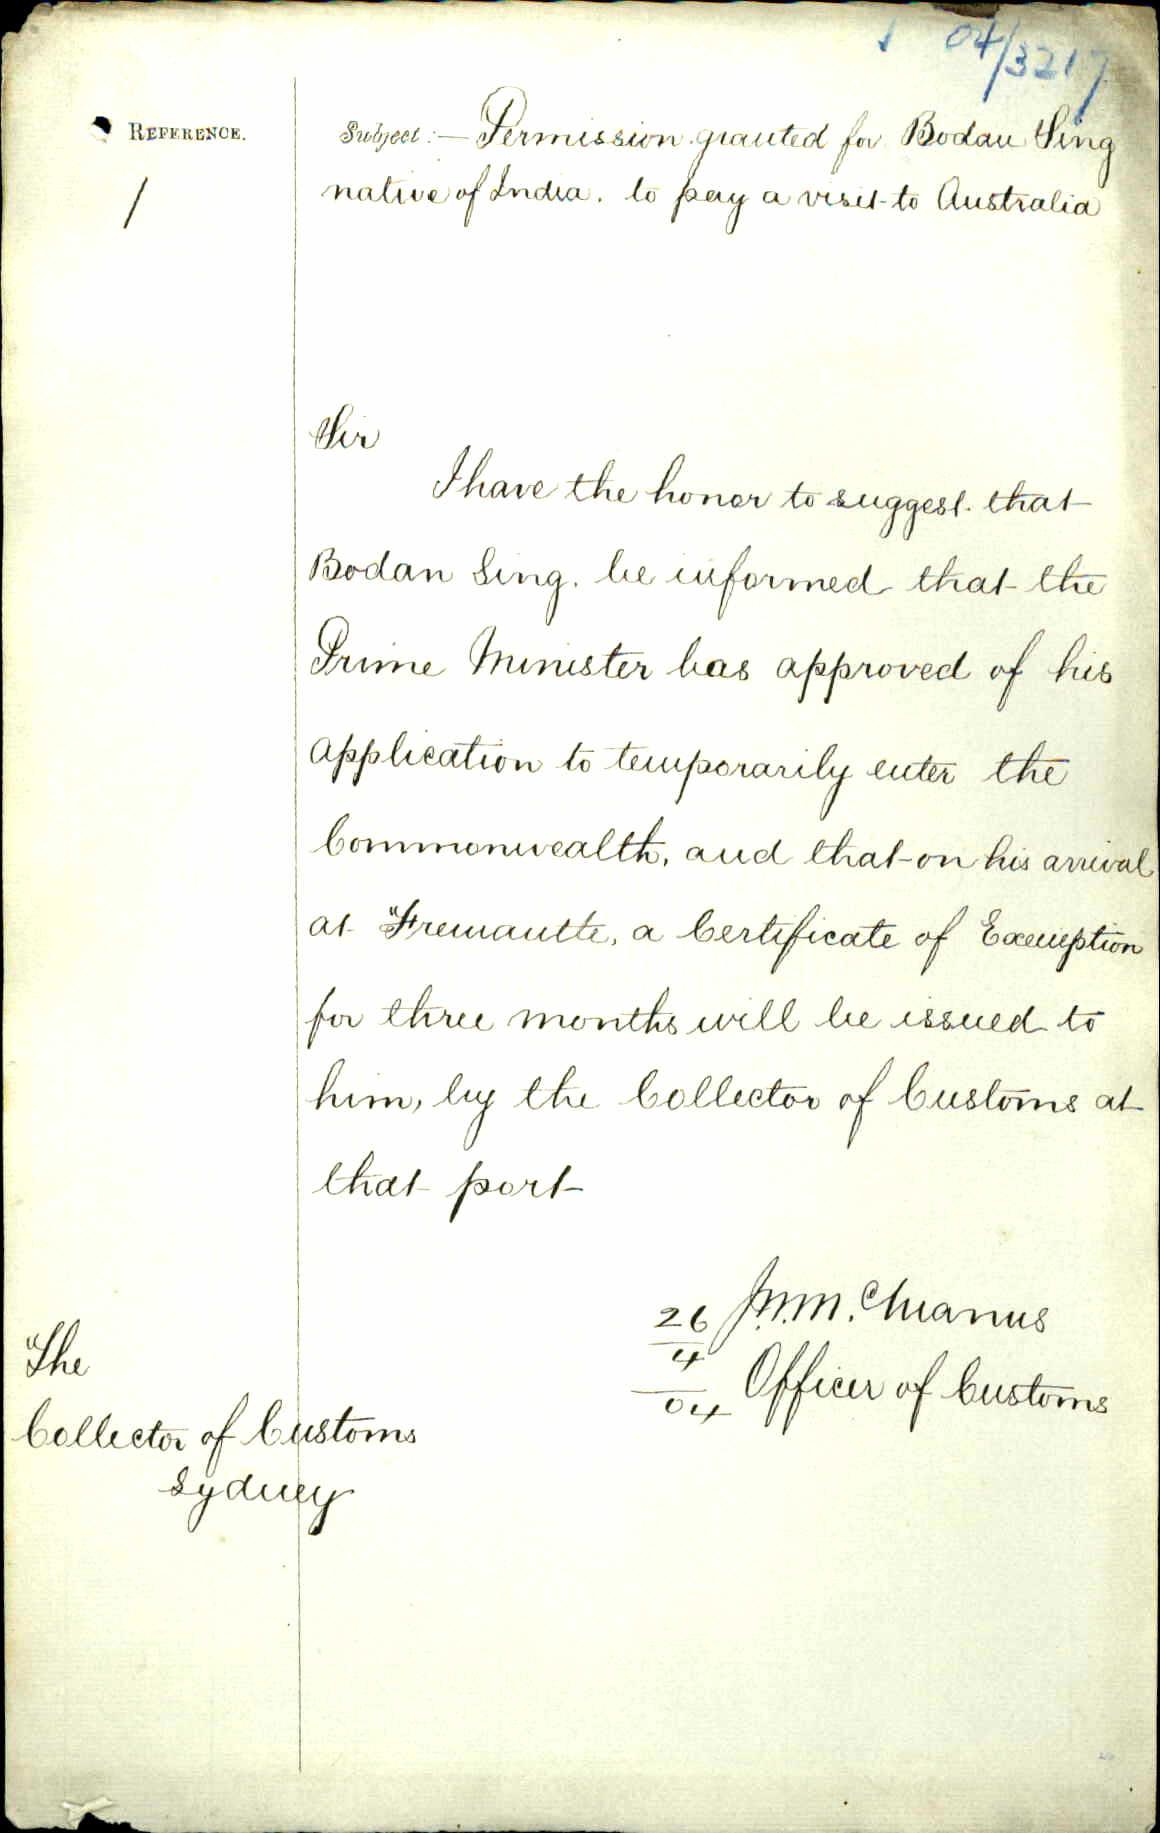 04/3217
REFERENCE.
1
Subject:— Permission granted for Bodan Sing
native of India. to pay a visit to Australia
Sir
I have the honor to suggest that
Bodan Sing. be informed that the
Prime Minister has approved of his
application to temporarily enter the
Commonwealth, and that on his arrival
at Fremantle, a Certificate of Exemption
for three months will be issued to
him, by the Collector of Customs at
that port
26
4
04
Officer of Customs
The
Collector of Customs
Sydney